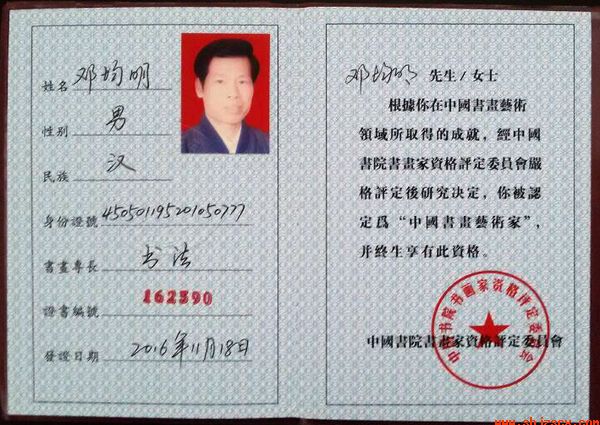 姓名 邓均明
性别 男
民族 汉
身份證號 450501195201050777
書畫專長 书法
證書編號 162390
發證日期 2016年11月18日
邓均明 先生/女士
根據你在中國書畫藝術
領域所取得的成就，經中國
書院書畫家資格評定委員會嚴
格評定後研究决定，你被認
定爲“中國書畫藝術家”，
并終生享有此資格。
中國书院书画家资格评定委员会
中國書院書畫家資格評定委員會